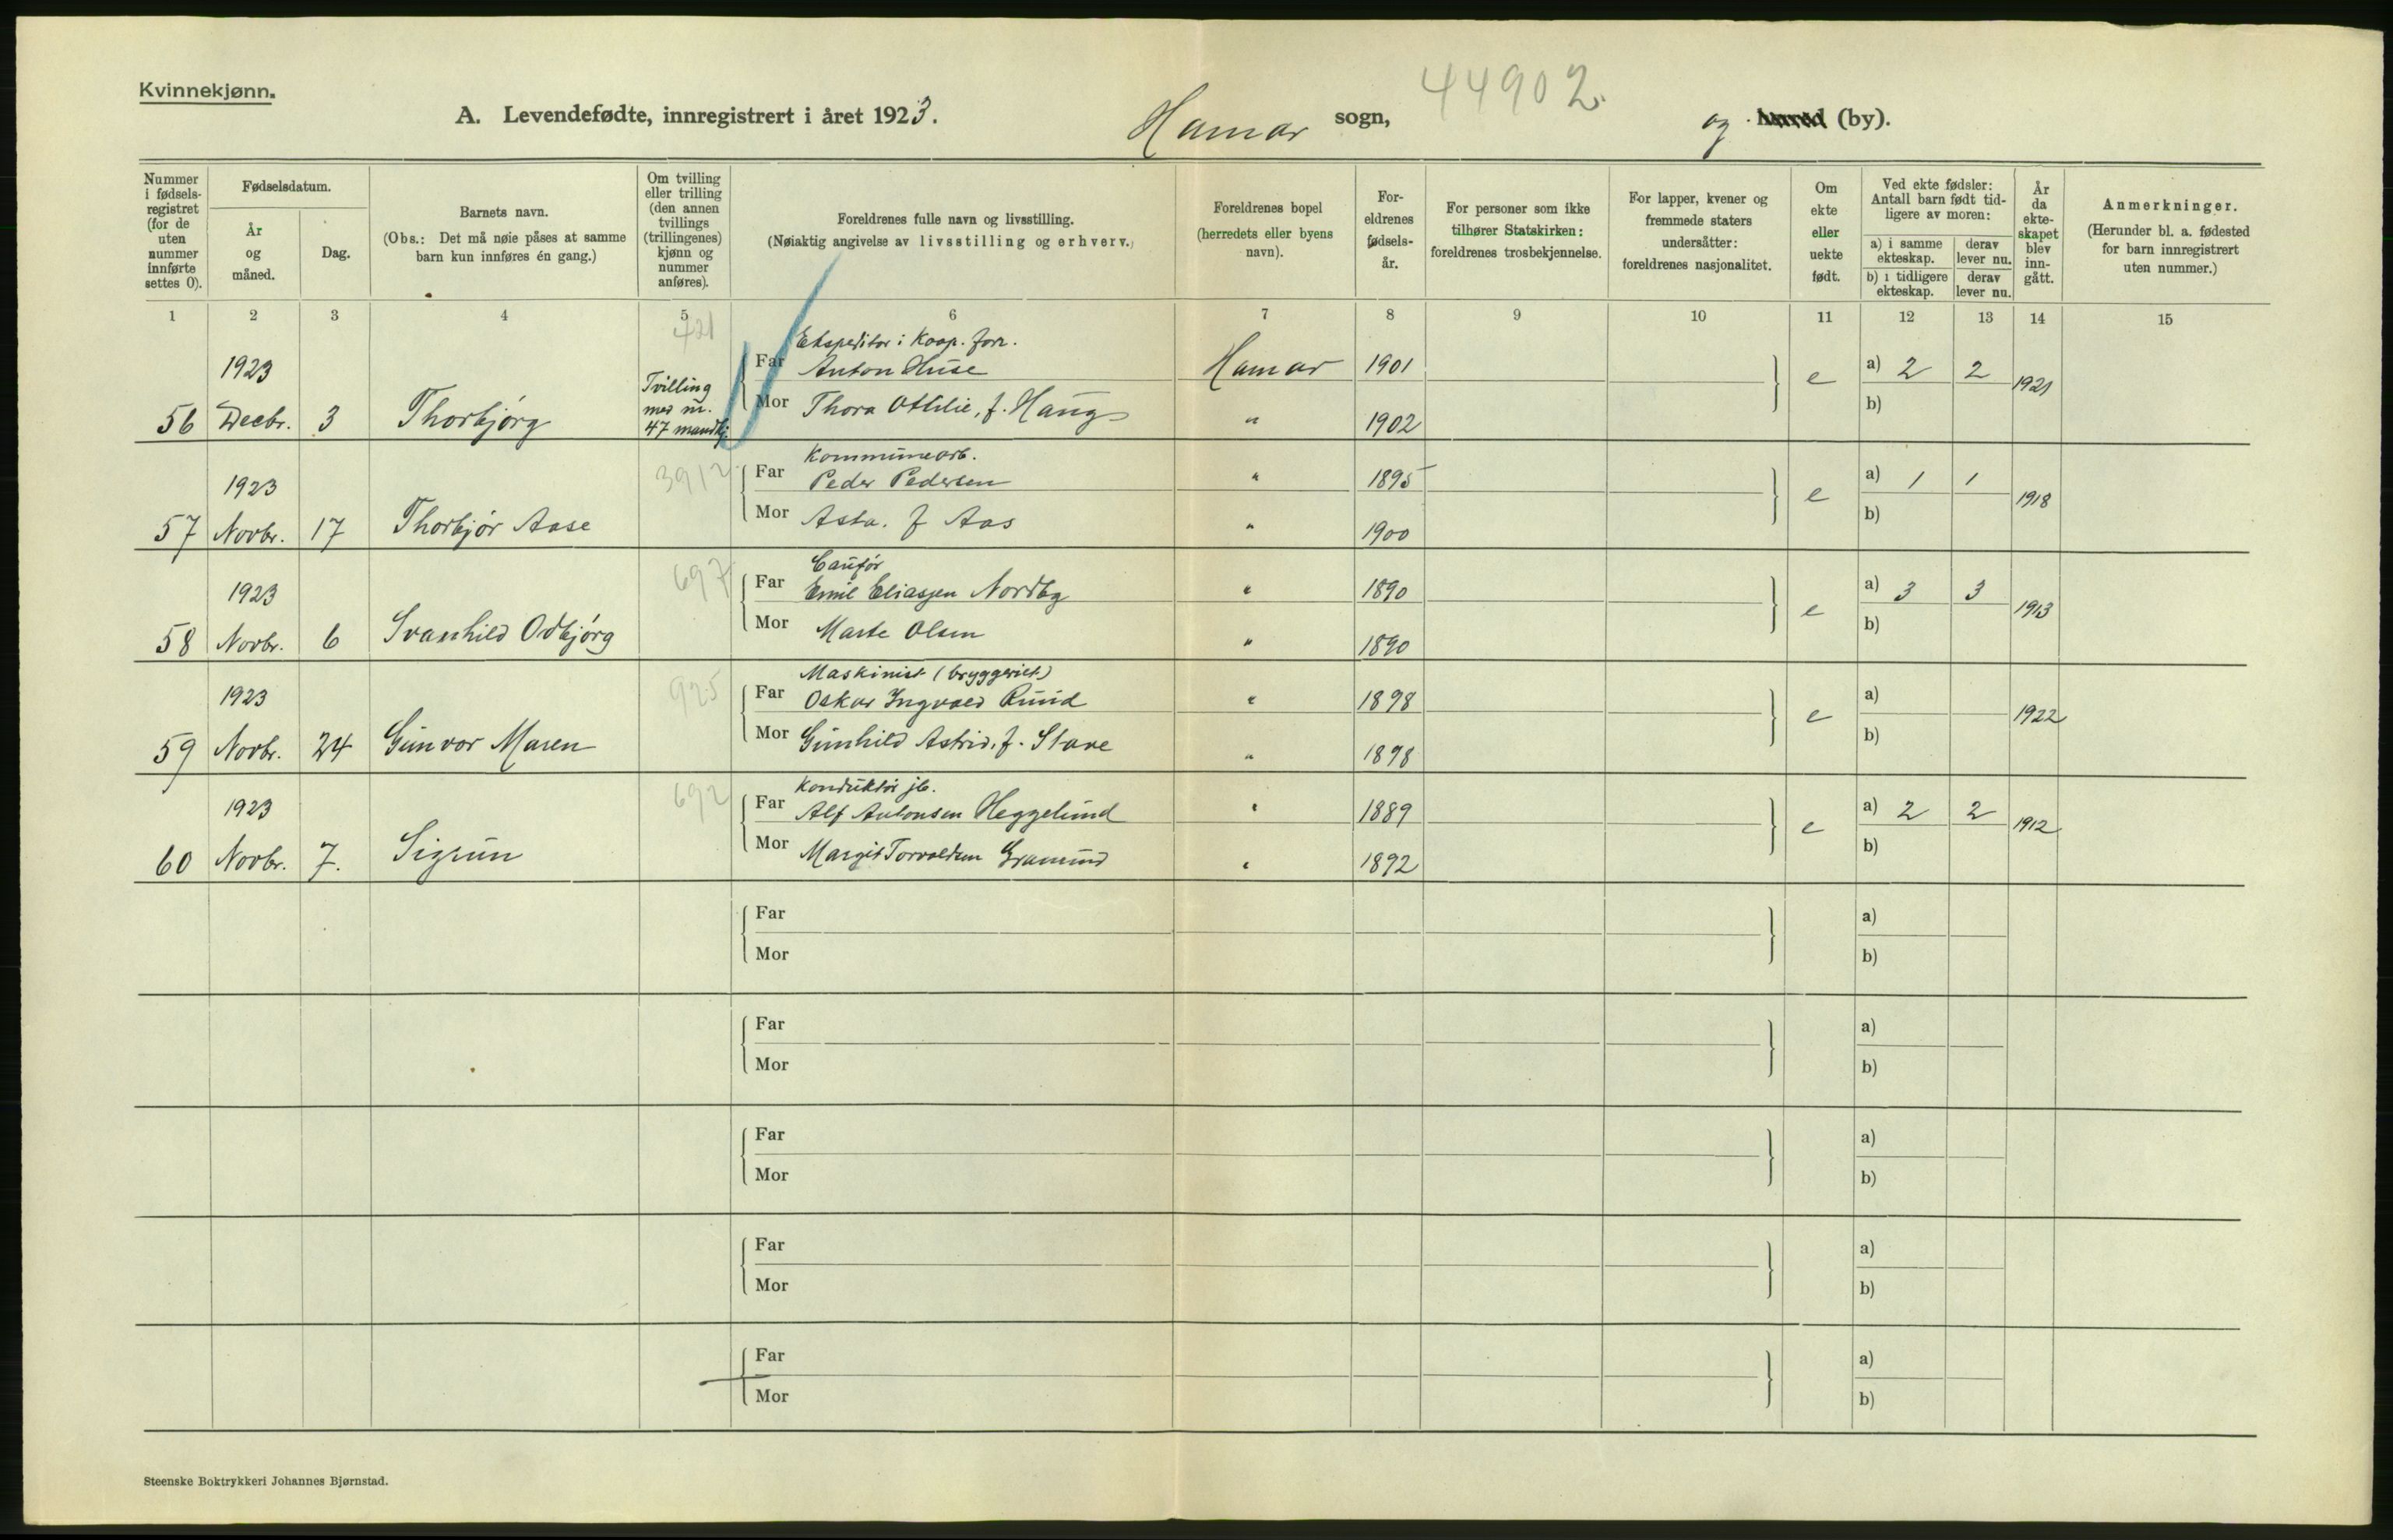 Kvinnekjønn.
44902.
A. Levendefødte, innregistrert i året 1923.
Hamar sogn,
og herred (by).
Nummer i fødselsregistret (for de uten nummer innførte settes 0).
Fødselsdatum.
År og måned.
Dag.
Barnets navn.
(Obs.: Det må nøie påses at samme barn kun innføres én gang.)
Om tvilling eller trilling (den annen tvillings (trillingenes) kjønn og nummer anføres).
Foreldrenes fulle navn og livsstilling.
(Nøiaktig angivelse av livsstilling og erhverv.)
Foreldrenes bopel (herredets eller byens navn).
Foreldrenes fødselsår.
For personer som ikke tilhører Statskirken: foreldrenes trosbekjennelse.
For lapper, kvener og fremmede staters undersåtter: foreldrenes nasjonalitet.
Om ekte eller uekte født.
Ved ekte fødsler: Antall barn født tidligere av moren:
a) i samme ekteskap.
derav lever nu.
b) i tidligere ekteskap.
derav lever nu.
År da ekteskapet blev inngått.
Anmerkninger.
(Herunder bl. a. fødested for barn innregistrert uten nummer.)
1 2 3 4 5 6 7 8 9 10 11 12 13 14 15
421
Ekspeditør i Koop. forr.
1923 Far Anton Huse Hamar 1901 e a) 2 2 1921
Tvilling med nr. 47 mandkj.
56 Decbr. 3 Thorbjørg Mor Thora Othilie, f. Haug " 1902 b)
3912
Kommunearb.
1923 Far Peder Pedersen " 1895 e a) 1 1 1918
57 Novbr. 17 Thorbjør Aase Mor Asta. f Aas " 1900 b)
697
Caufør
1923 Far Emil Eliassen Nordby " 1890 e a) 3 3 1913
58 Novbr. 6 Svanhild Odbjørg Mor Marte Olsen " 1890 b)
925
Maskinist (bryggeriet)
1923 Far Oskar Ingvald Ruud " 1898 e a) 1922
59 Novbr. 24 Gunvor Maren Mor Gunhild Astrid, f. Stave " 1898 b)
692
Konduktør jb.
1923 Far Alf Antonsen Heggelund " 1889 e a) 2 2 1912
60 Novbr. 7. Sigrun Mor Margit Torvaldsen Gramund " 1892 b)
Far a)
Mor b)
Far a)
Mor b)
Far a)
Mor b)
Far a)
Mor b)
Far a)
Mor b)
Steenske Boktrykkeri Johannes Bjørnstad.